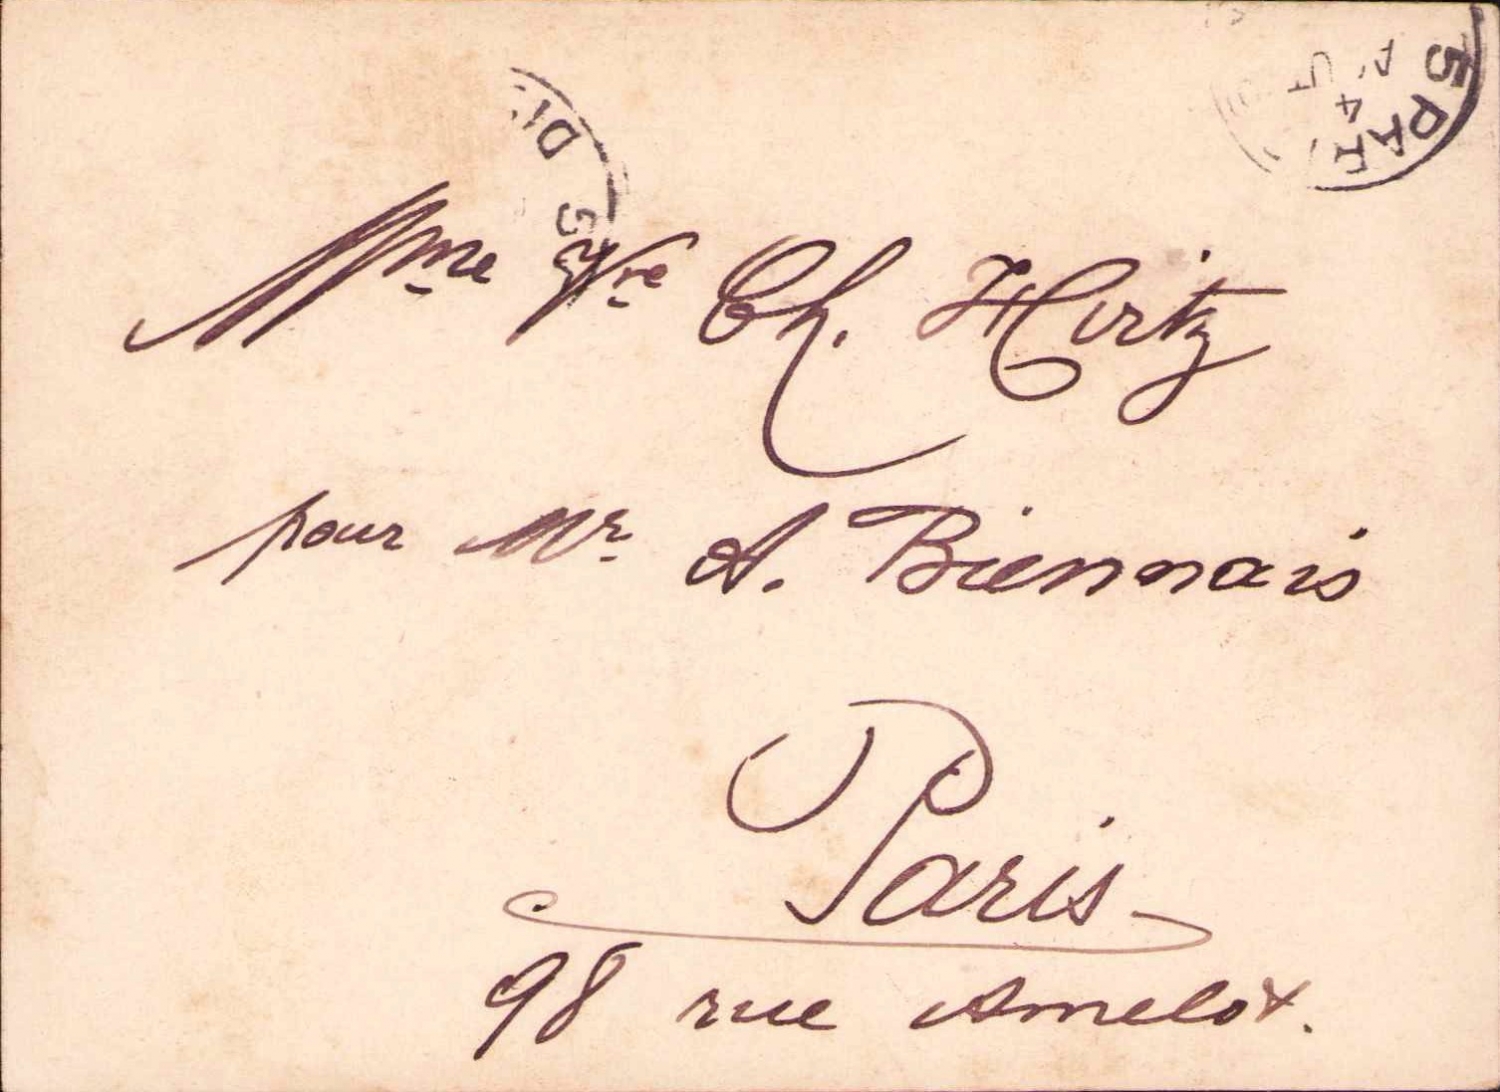 5 PAR
DI
Mme Vve Ch. Hirtz
pour Mr. A. Biennais
Paris
98 rue Amelot.